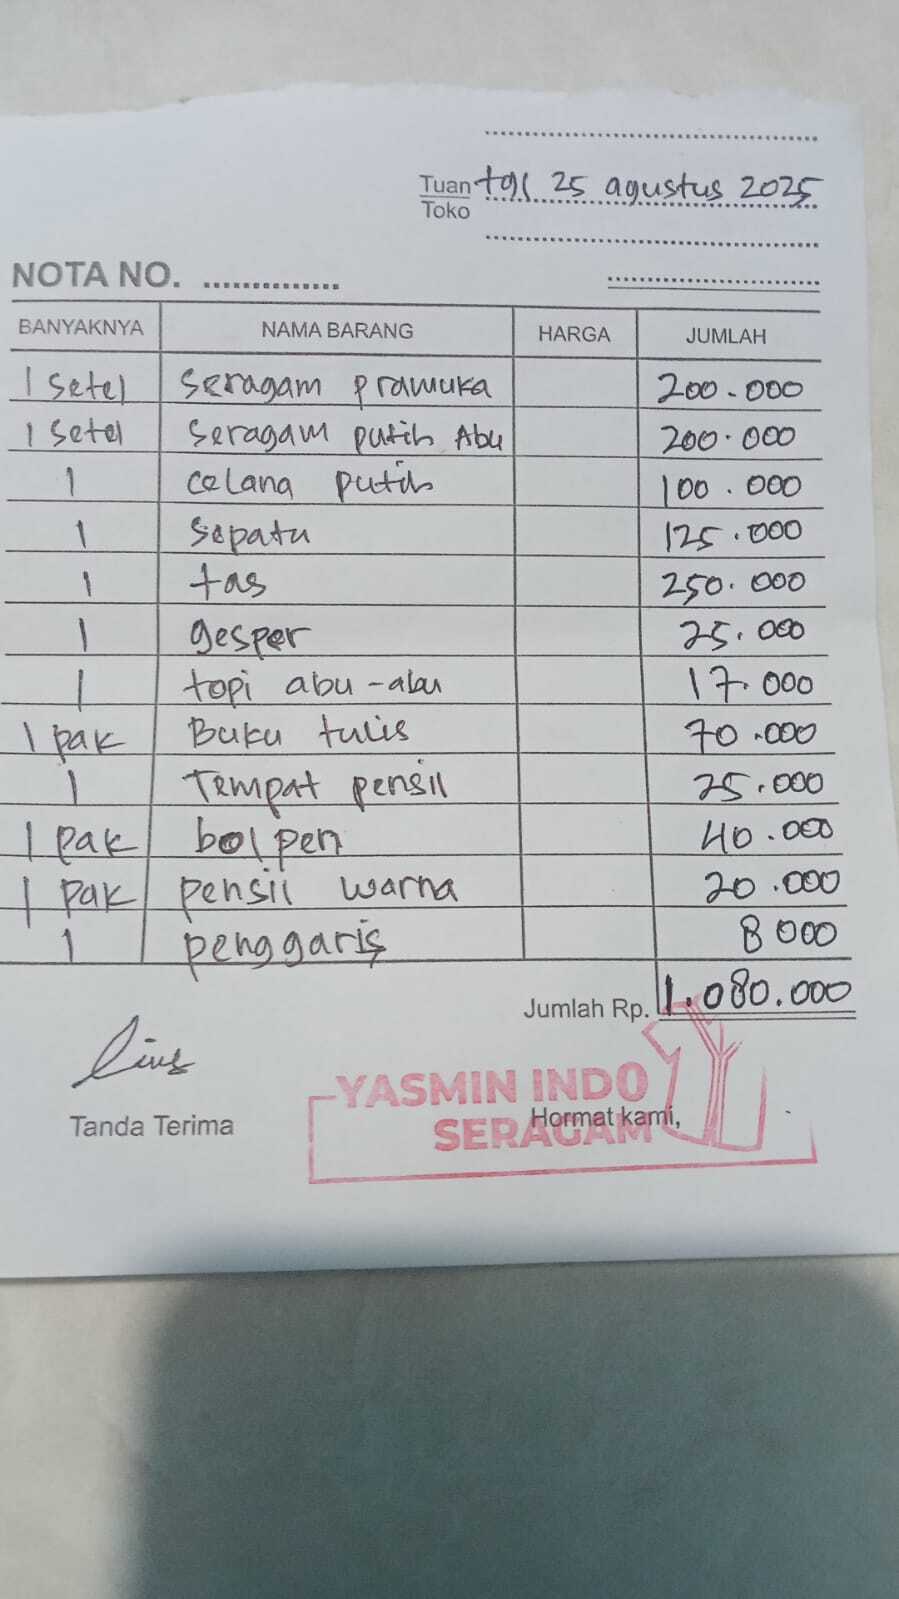 Tuan tgl 25 agustus 2025
Toko
NOTA NO.
BANYAKNYA NAMA BARANG HARGA JUMLAH
1 setel seragam pramuka 200.000
1 setel seragam putih Abu 200.000
1 celana putih 100.000
1 sepatu 125.000
1 tas 250.000
1 gesper 25.000
1 topi abu-abu 17.000
1 pak Buku tulis 70.000
1 Tempat pensil 25.000
1 pak bolpen 40.000
1 pak pensil warna 20.000
1 penggaris 8000
Jumlah Rp. 1.080.000
YASMIN INDO
SERAGAM
Tanda Terima Hormat kami,